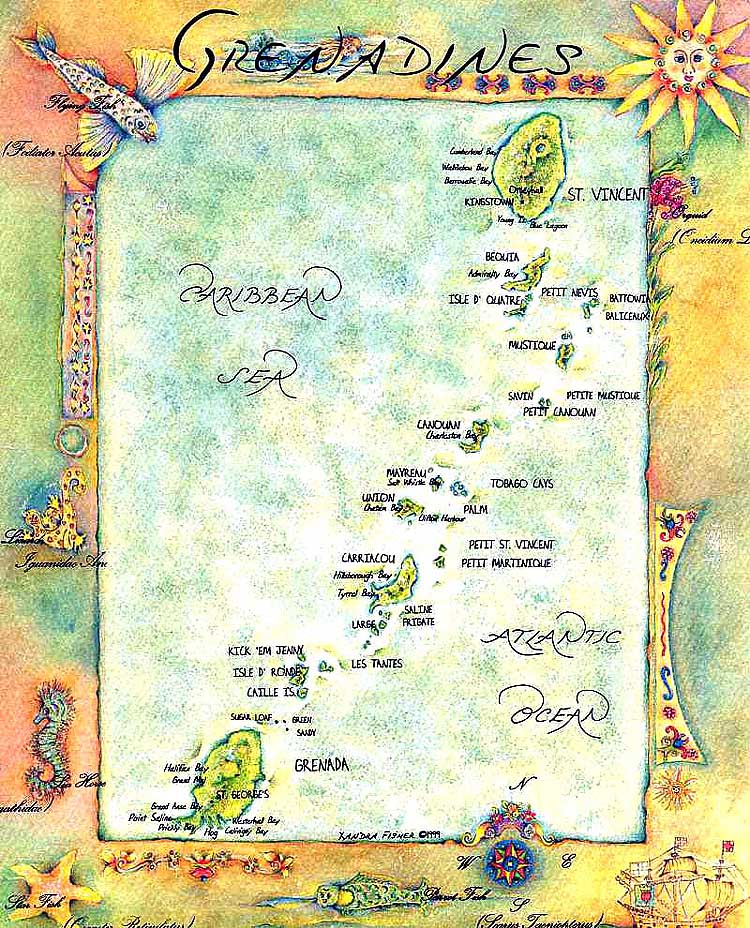 GRENADINES
Flying Fish
(Fodiator Acutus)
Cumberland Bay
Wallilabou Bay
Barrouallie Bay
KINGSTOWN
ST. VINCENT
Young Is.
Blue Lagoon
Orquid
(Oncidium L
CARIBBEAN
SEA
BEQUIA
Admiralty Bay
ISLE D' QUATRE
PETIT NEVIS
BATTOWIA
BALICEAUX
MUSTIQUE
SAVIN
PETITE MUSTIQUE
PETIT CANOUAN
CANOUAN
Charleston Bay
MAYREAU
Salt Whistle Bay
TOBAGO CAYS
UNION
Chatham Bay
Clifton Harbour
PALM
PETIT ST. VINCENT
PETIT MARTINIQUE
CARRIACOU
Hillsborough Bay
Tyrrel Bay
SALINE
FRIGATE
LARGE
Iguanidae An
ATLANTIC
OCEAN
KICK 'EM JENNY
ISLE D' RONDE
CAILLE IS.
LES TANTES
SUGAR LOAF
GREEN
SANDY
GRENADA
Halifax Bay
Grand Mal
ST. GEORGE'S
Grand Anse Bay
Point Saline
Prickly Bay
Hog
Calivigny Bay
Westerhall Bay
XANDRA FISHER ©1999
Sea Horse
gnathidae)
N
W
E
S
Star Fish
Parrot Fish
(Scarus Taeniopterus)